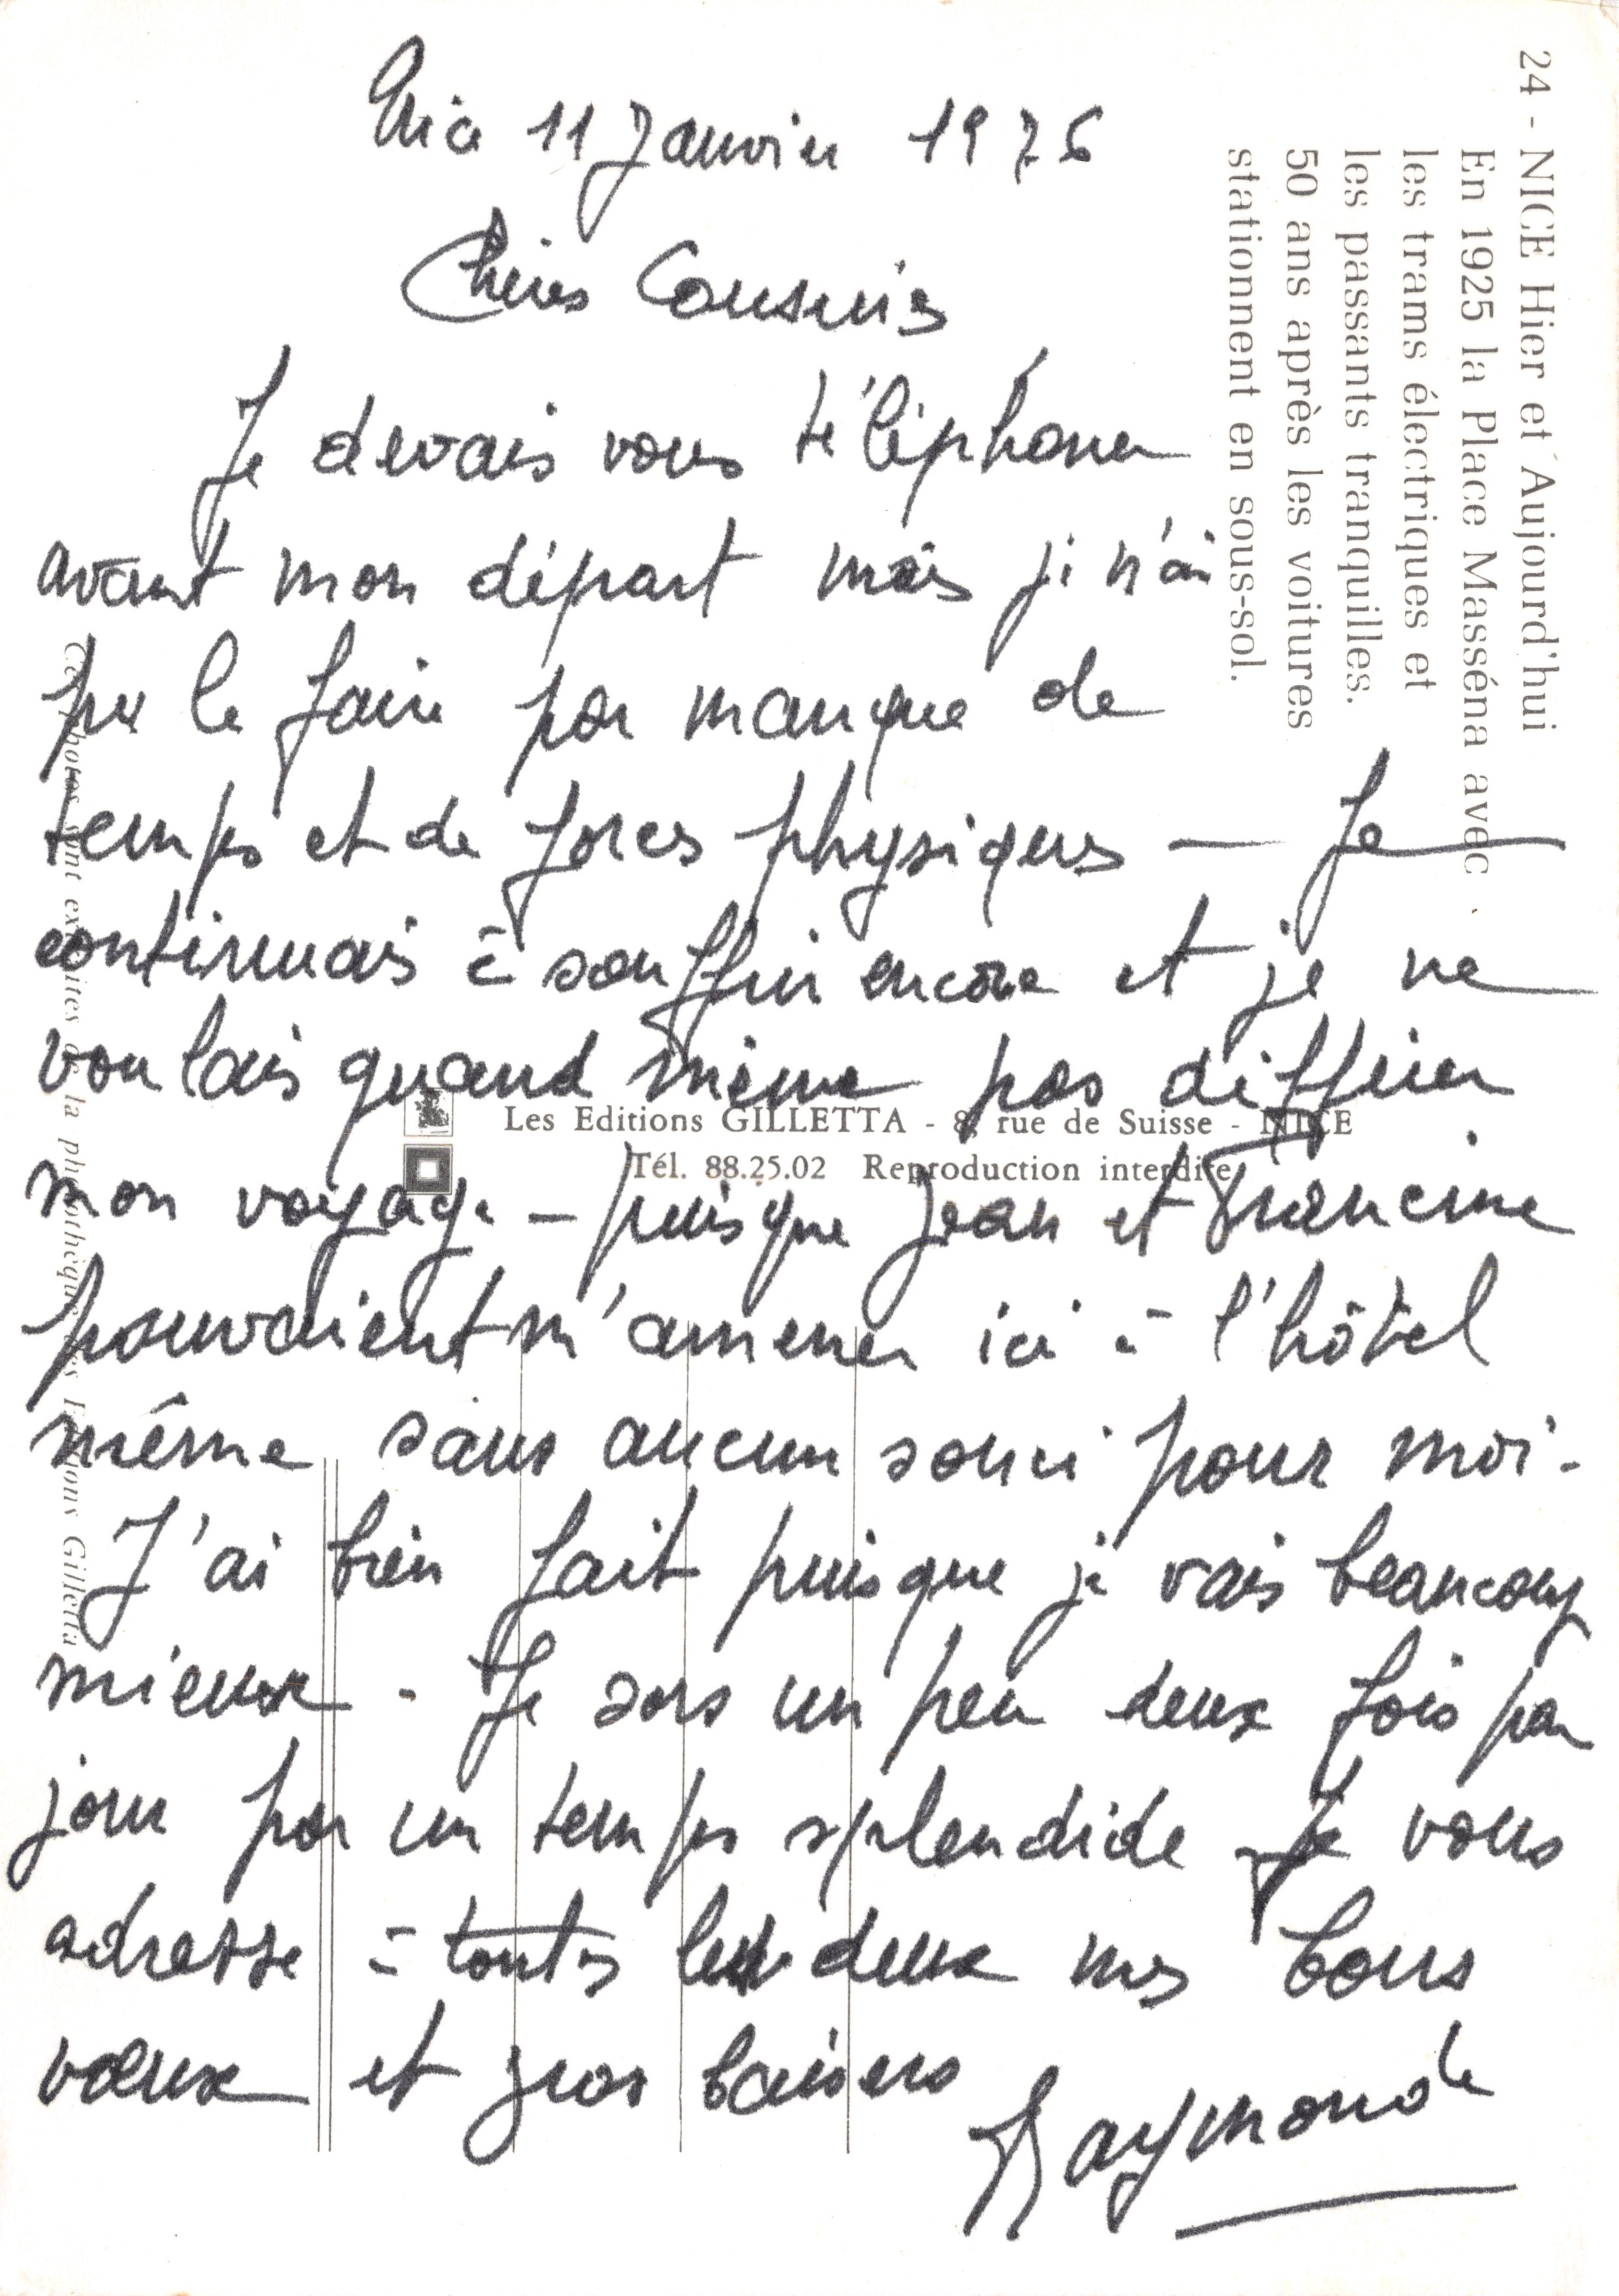 Nice 11 Janvier 1976
Chères Cousines
Je devais vous téléphoner
avant mon départ mais je n'ai
pu le faire par manque de
temps et de forces physiques — Je
continuais à souffrir encore et je ne
voulais quand même pas différer
mon voyage — puisque Jean et Francine
pouvaient m'amener ici à l'hôtel
même sans aucun souci pour moi -
J'ai bien fait puisque je vais beaucoup
mieux - Je sors un peu deux fois par
jour par un temps splendide - Je vous
adresse à toutes les deux mes bons
vœux et gros baisers
Raymonde
24 - NICE Hier et Aujourd'hui
En 1925 la Place Masséna avec
les trams électriques et
les passants tranquilles.
50 ans après les voitures
stationnent en sous-sol.
Les Editions GILLETTA - 8, rue de Suisse - NICE
Tél. 88.25.02 Reproduction interdite
Ces photos sont extraites de la photothèque des Editions Gilletta